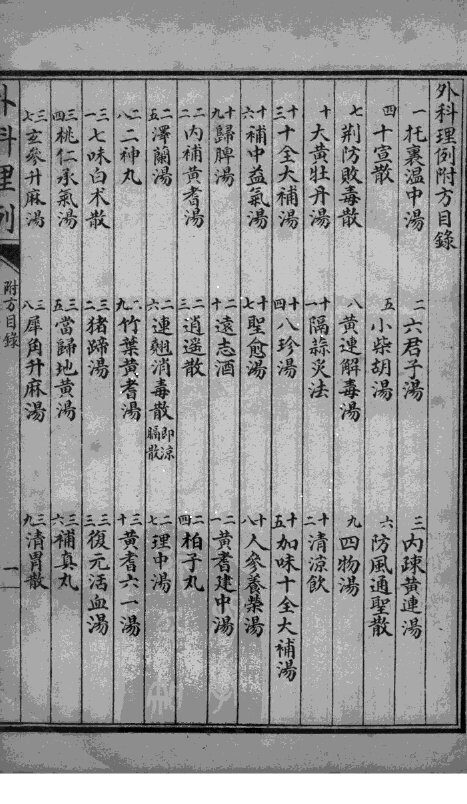 外科理例附方目錄
一 托裏温中湯
二 六君子湯
三 内疎黃連湯
四 十宣散
五 小柴胡湯
六 防風通聖散
七 荆防敗毒散
八 黃連解毒湯
九 四物湯
十 大黃牡丹湯
十一 隔蒜灸法
十二 清涼飲
十三 十全大補湯
十四 八珍湯
十五 加味十全大補湯
十六 補中益氣湯
十七 聖愈湯
十八 人參養榮湯
十九 歸脾湯
二十 遠志酒
二一 黃耆建中湯
二二 内補黃耆湯
二三 逍遥散
二四 柏子丸
二五 澤蘭湯
二六 連翹消毒散即涼膈散
二七 理中湯
二八 二神丸
二九 竹葉黃耆湯
三十 黃耆六一湯
三一 七味白术散
三二 猪蹄湯
三三 復元活血湯
三四 桃仁承氣湯
三五 當歸地黃湯
三六 補真丸
三七 玄參升麻湯
三八 犀角升麻湯
三九 清胃散
外科理例
附方目錄
一